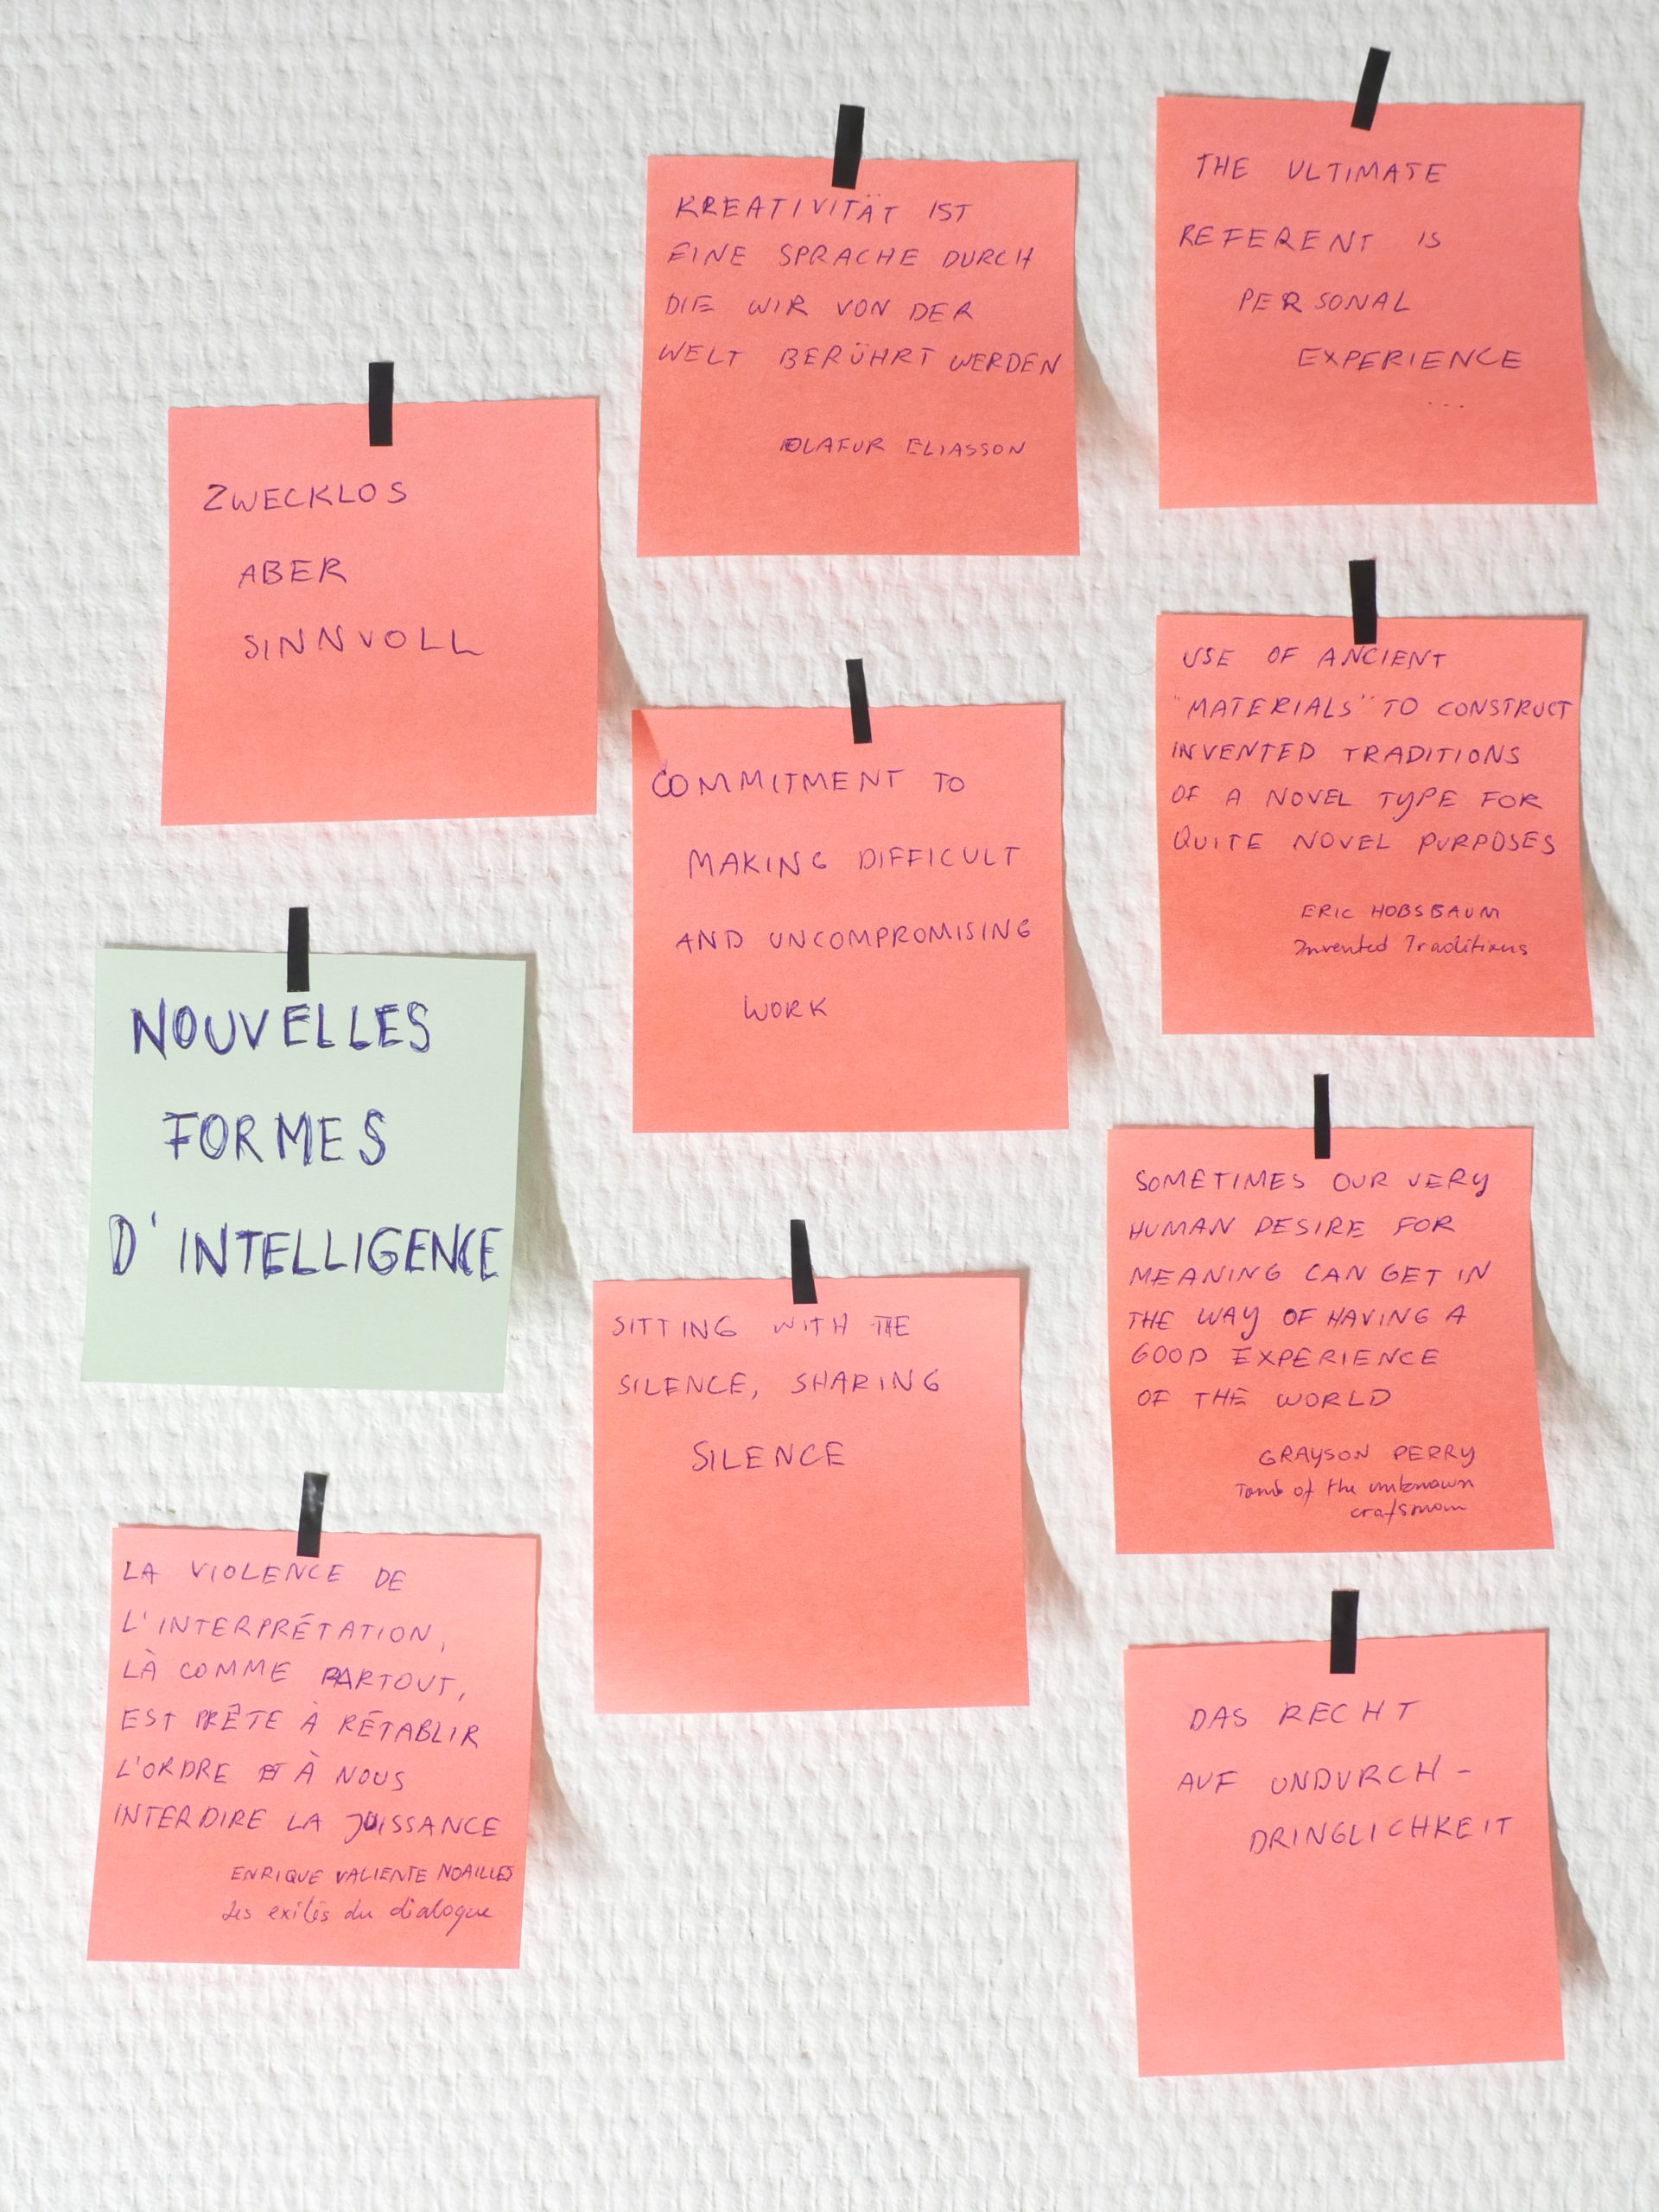 ZWECKLOS
ABER
SINNVOLL
NOUVELLES
FORMES
D'INTELLIGENCE
LA VIOLENCE DE
L'INTERPRÉTATION,
LÀ COMME PARTOUT,
EST PRÊTE À RÉTABLIR
L'ORDRE ET À NOUS
INTERDIRE LA JOUISSANCE
ENRIQUE VALIENTE NOAILLES
Les exilés du dialogue
KREATIVITÄT IST
EINE SPRACHE DURCH
DIE WIR VON DER
WELT BERÜHRT WERDEN
OLAFUR ELIASSON
COMMITMENT TO
MAKING DIFFICULT
AND UNCOMPROMISING
WORK
SITTING WITH THE
SILENCE, SHARING
SILENCE
THE ULTIMATE
REFERENT IS
PERSONAL
EXPERIENCE
...
USE OF ANCIENT
"MATERIALS" TO CONSTRUCT
INVENTED TRADITIONS
OF A NOVEL TYPE FOR
QUITE NOVEL PURPOSES
ERIC HOBSBAUM
Invented Traditions
SOMETIMES OUR VERY
HUMAN DESIRE FOR
MEANING CAN GET IN
THE WAY OF HAVING A
GOOD EXPERIENCE
OF THE WORLD
GRAYSON PERRY
Tomb of the unknown
craftsman
DAS RECHT
AUF UNDURCH-
DRINGLICHKEIT